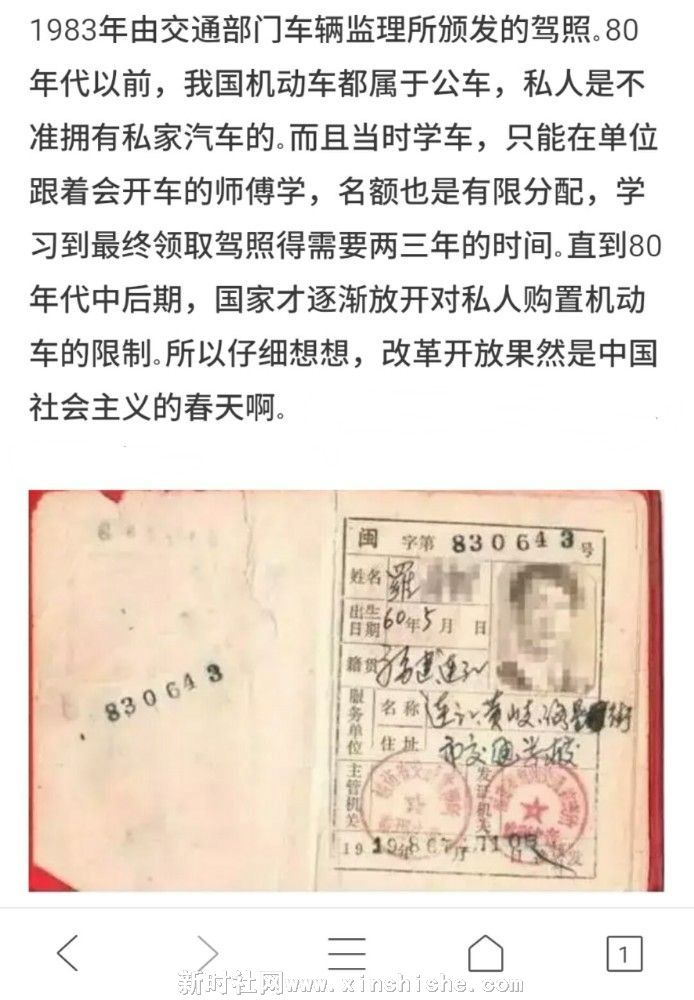 1983年由交通部门车辆监理所颁发的驾照。80
年代以前，我国机动车都属于公车，私人是不
准拥有私家汽车的。而且当时学车，只能在单位
跟着会开车的师傅学，名额也是有限分配，学
习到最终领取驾照得需要两三年的时间。直到80
年代中后期，国家才逐渐放开对私人购置机动
车的限制。所以仔细想想，改革开放果然是中国
社会主义的春天啊。
830643
闽 字第 830643号
姓名 羅
出生日期 60年5月 日
籍贯 福建连江
服务单位 名称 连江黄岐 街
住址 市交通学校
主管机关
发证机关
1
新时社网www.xinshishe.com